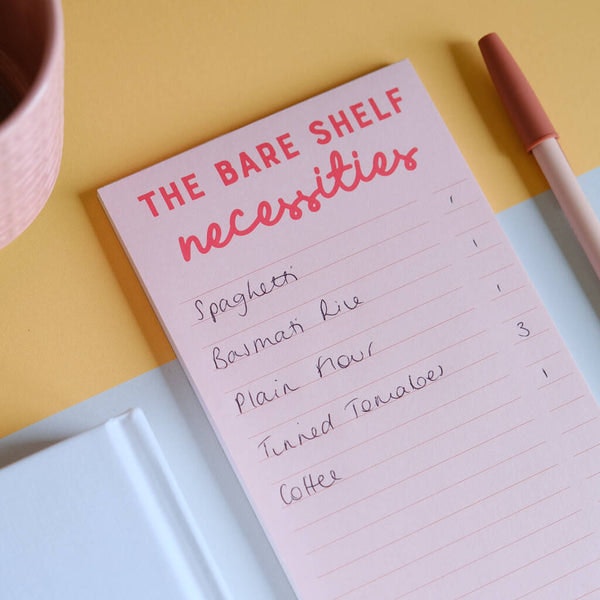 THE BARE SHELF
necessities
Spaghetti 1
Basmati Rice 1
Plain flour 1
Tinned Tomatoes 3
Coffee 1